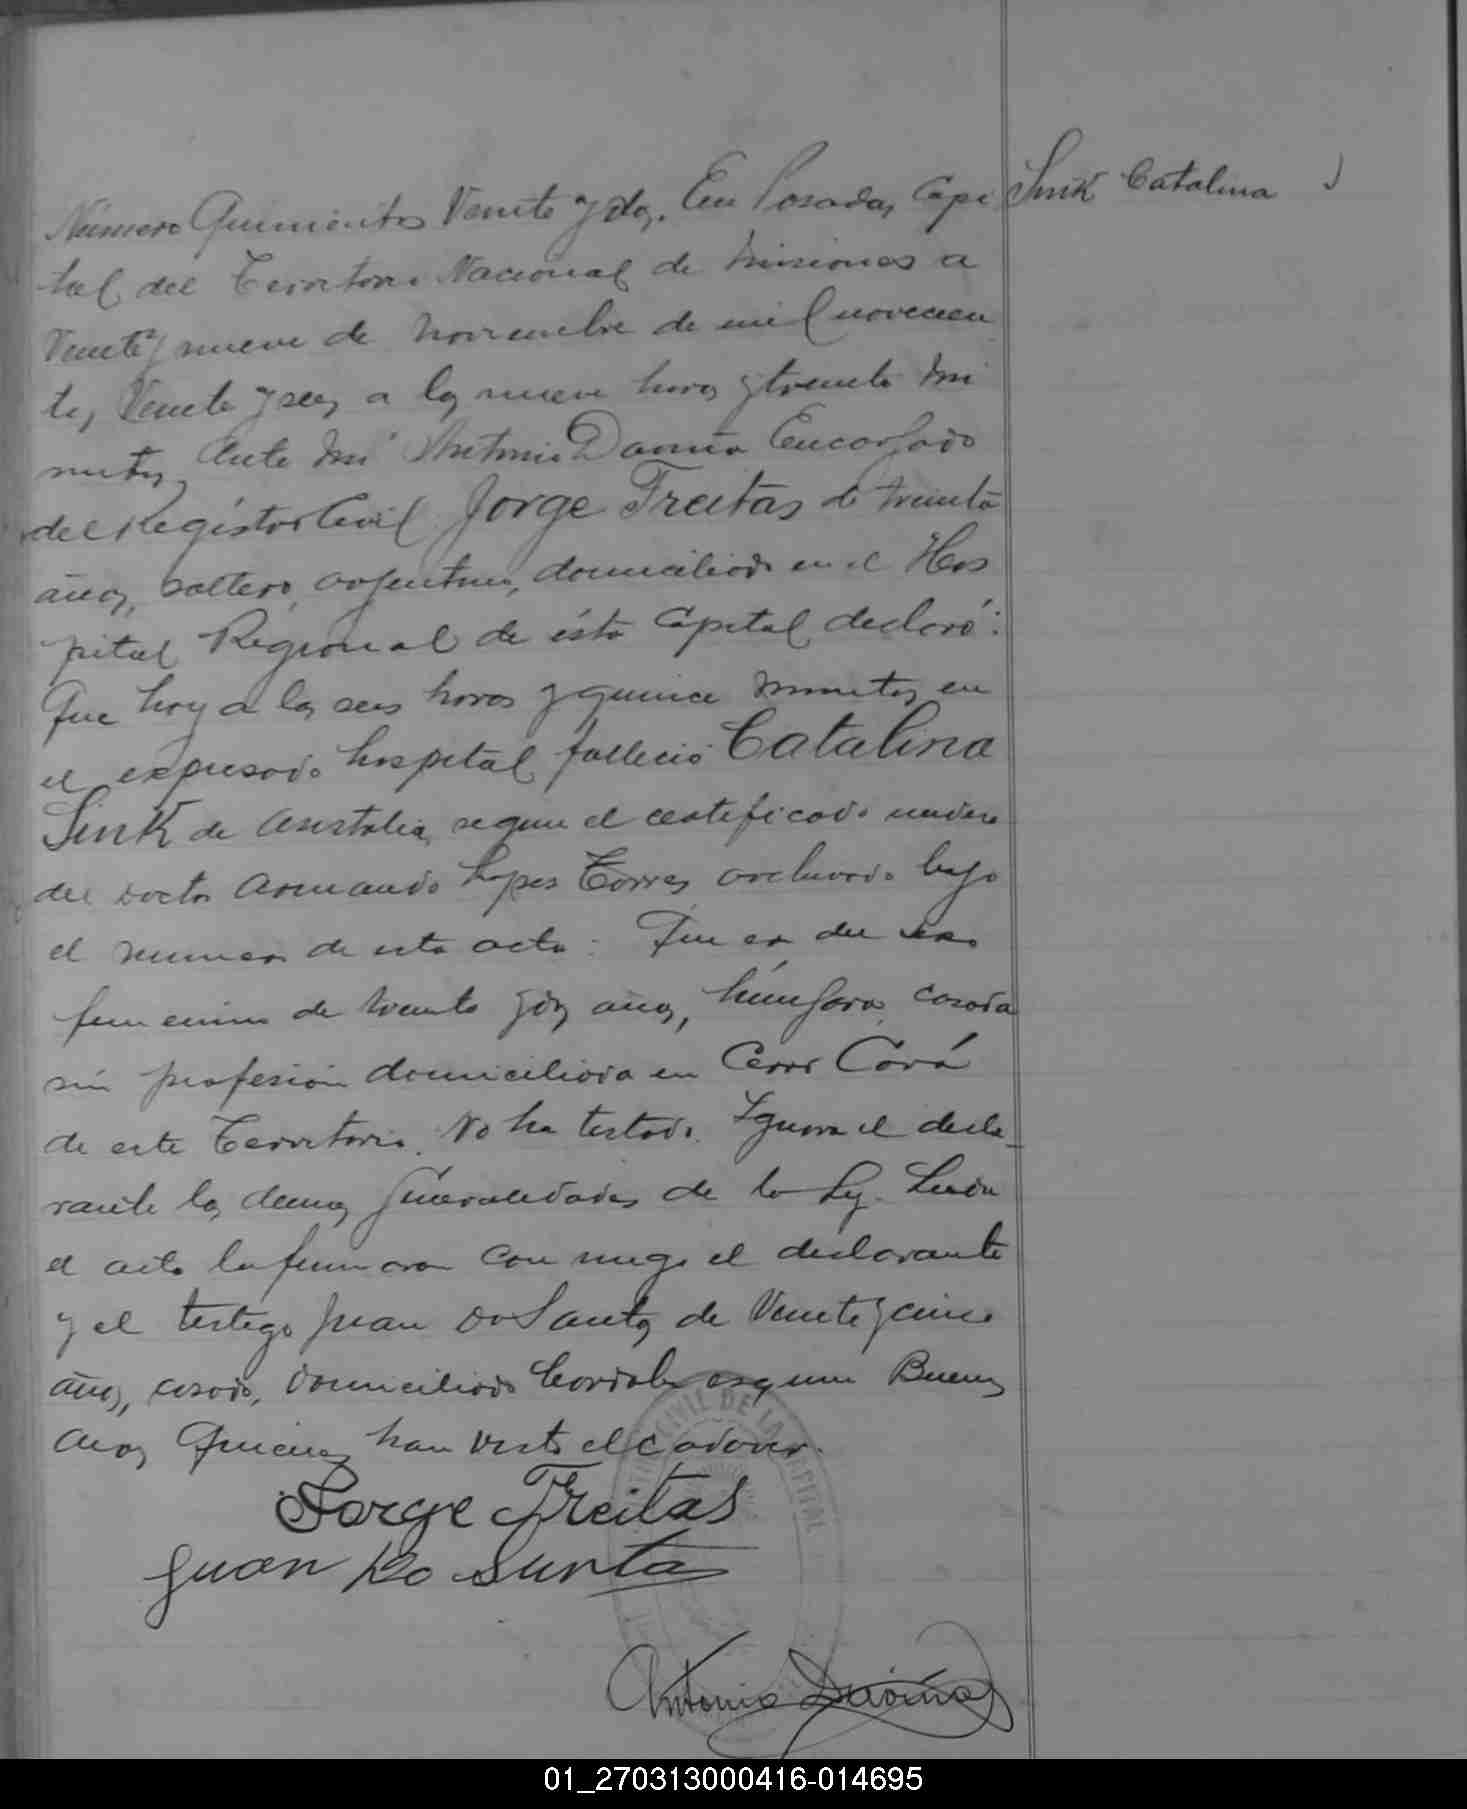 Número Quinientos Veinte y dos. En Posadas, Capi
Sink Catalina
tal del Territorio Nacional de Misiones a
Veinte y nueve de Noviembre de mil novecien
tos Veinte y seis a las nueve horas y treinta mi
nutos, Ante mi Antonio Encargado
del Registro Civil Jorge Freitas de treinta
años, soltero, argentino, domiciliado en el Hos
pital Regional de ésta Capital declaró:
Que hoy a las seis horas y quince minutos en
el expresado hospital falleció Catalina
Sink de según el certificado
del Doctor Armando Lopes Torres archivado bajo
el numero de esta acta: Que era del sexo
femenino de treinta y dos años, húngara, casada
sin profesión domiciliada en Cerro Corá
de este Territorio. No ha testado. Ignora el decla-
rante las demas generalidades de la Ley. Leida
el acta la firmaron con migo el declarante
y el testigo Juan Do Santos de Veinte y cinco
años, casado, domiciliado Cordoba esquina Buenos
Aires Quienes han visto el cadaver.
Jorge Freitas
Juan Do Santos
Antonio
CIVIL DE LA CAPITAL
01_270313000416-014695